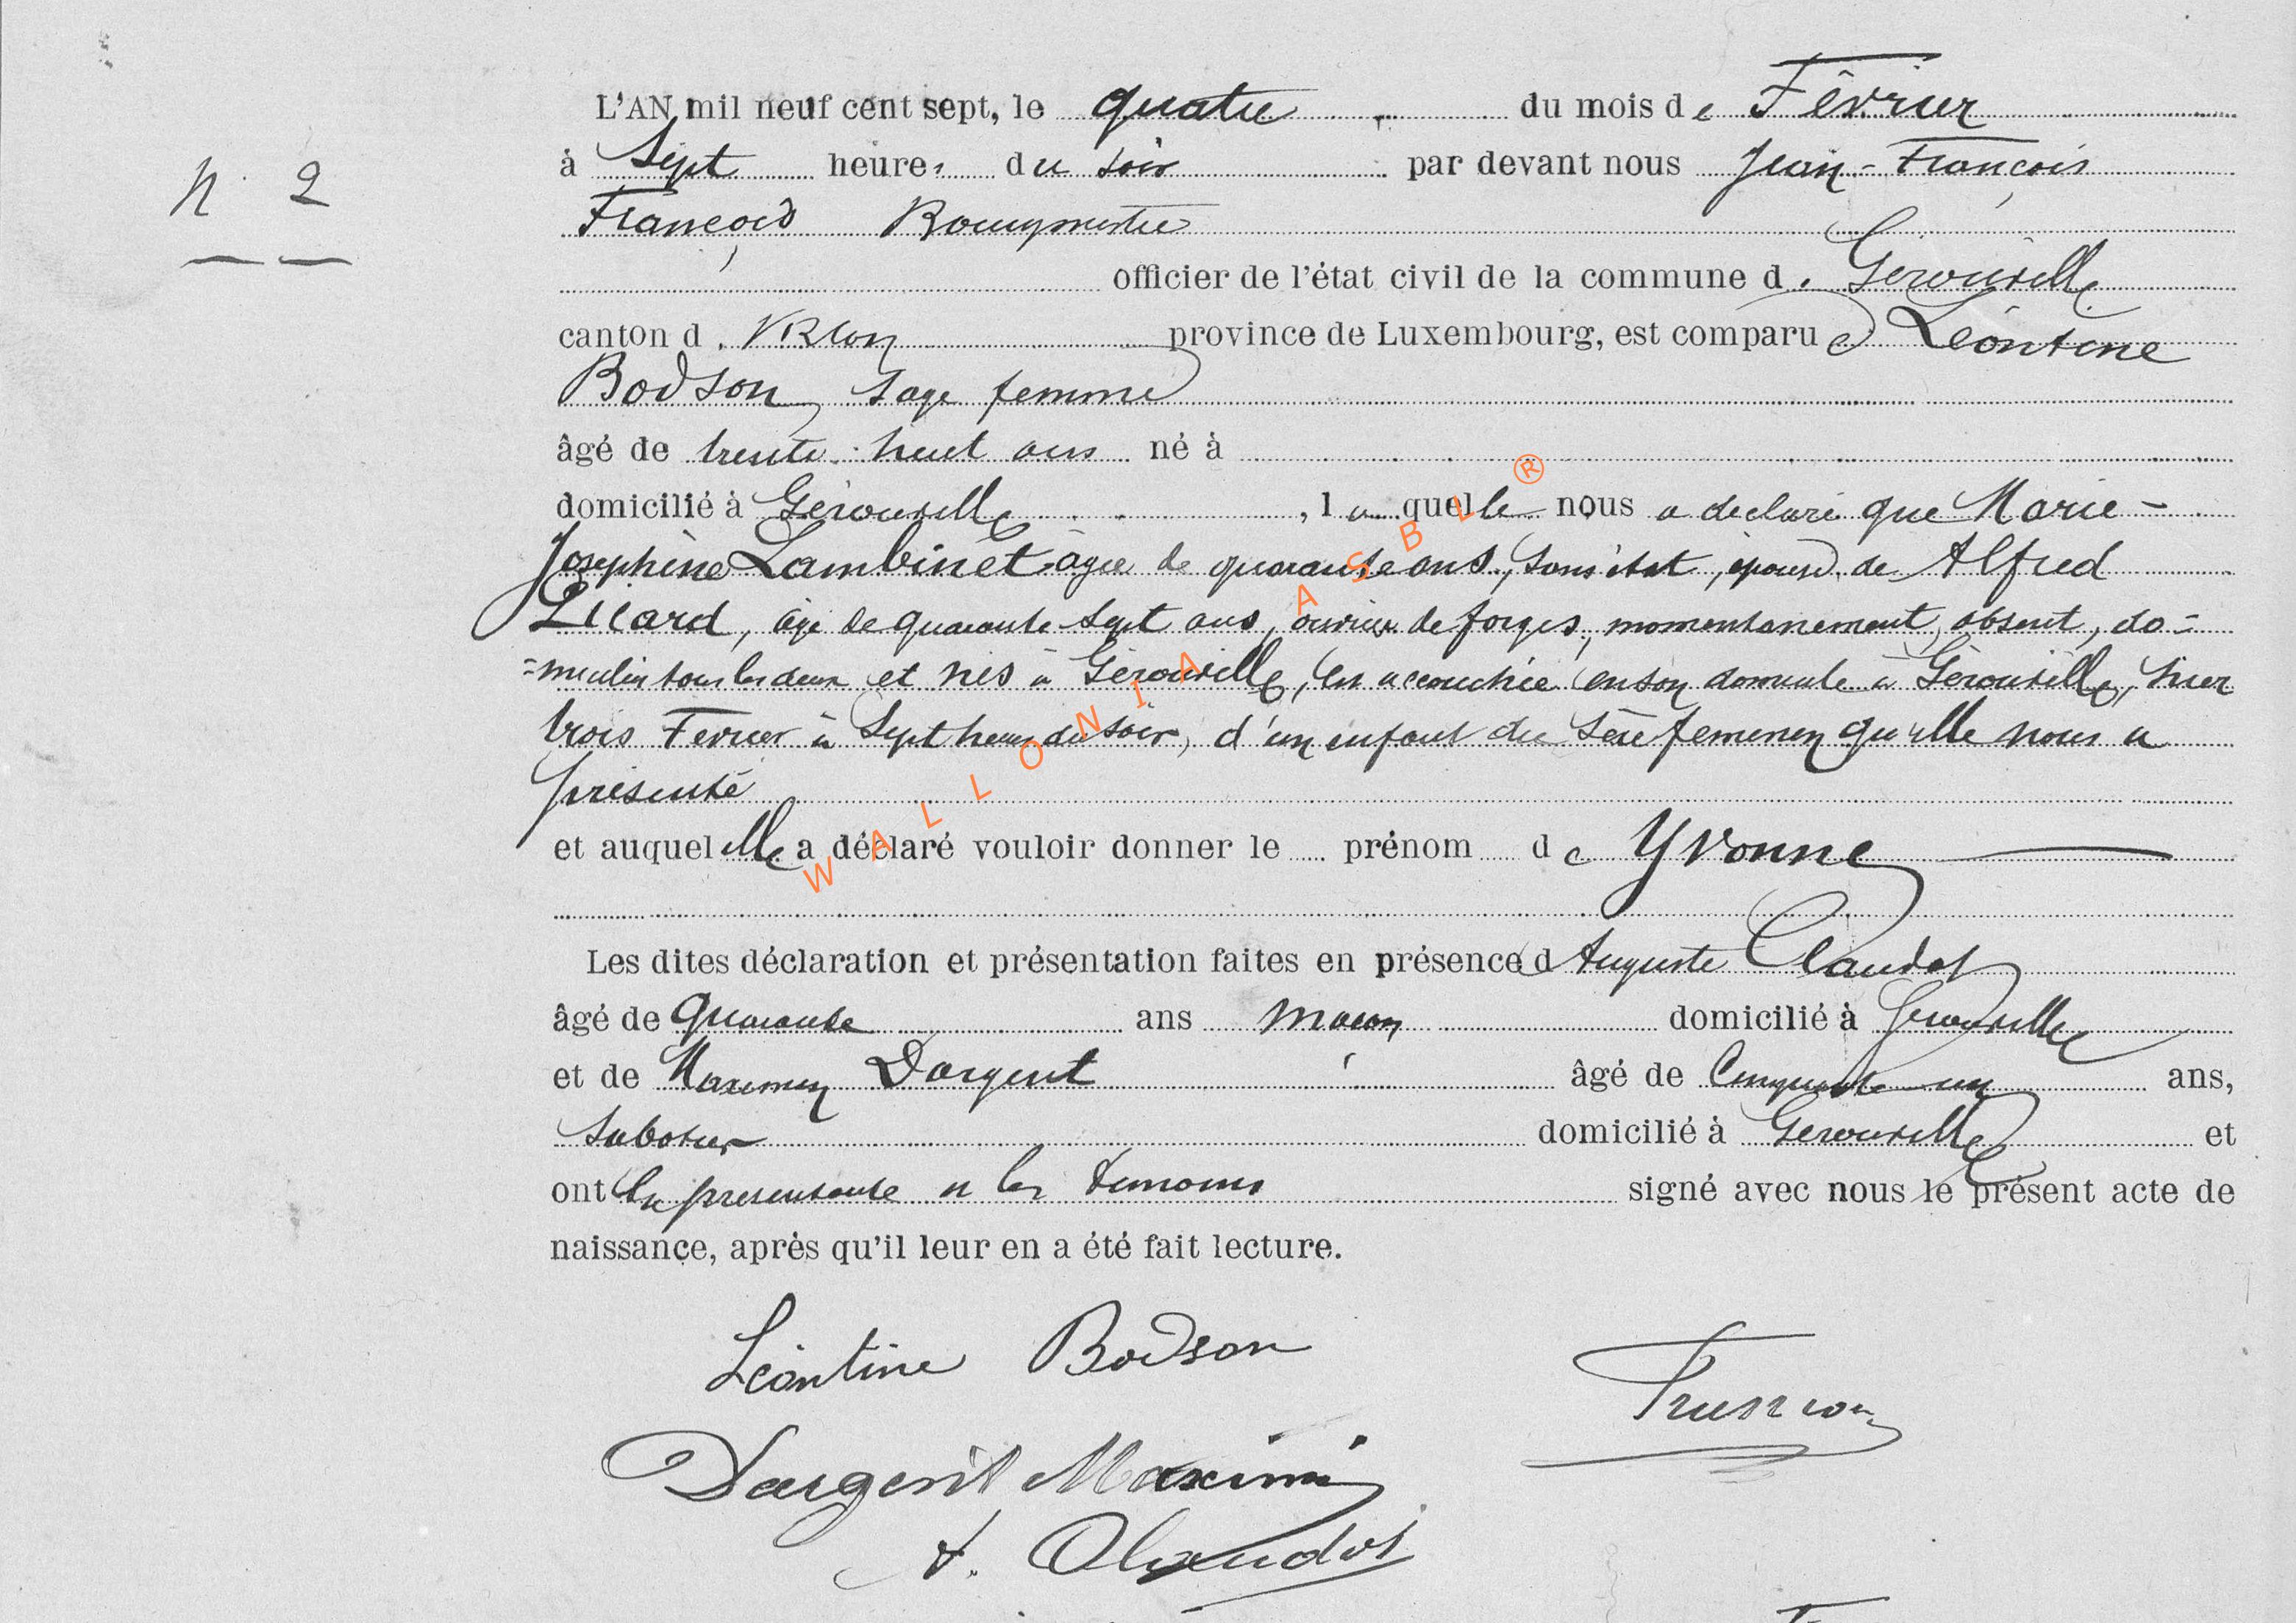 L'AN mil neuf cent sept, le quatre du mois de Février
N. 2
à Sept heures du soir par devant nous Jean-François
François Bourgmestre
officier de l'état civil de la commune de Gérouville
canton d Virton province de Luxembourg, est comparu Léontine
Bodson, Sage femme
âgé de trente huit ans né à
domicilié à Gérouville, laquelle nous a déclaré que Marie-
Joséphine Lambinet âgée de quarante ans, Sans état, épouse de Alfred
âgé de quarante Sept ans, ouvrier de forges, momentanément absent, do=
=miciliés tous les deux et nés à Gérouville, est accouchée en son domicile à Gérouville, hier
trois Février à Sept heures du Soir, d'un enfant du Sexe féminin qu'elle nous a
présenté
et auquel elle a déclaré vouloir donner le prénom de Yvonne
Les dites déclaration et présentation faites en présence d Auguste Claudot
âgé de quarante ans maçon domicilié à Gérouville
et de Maximin Dargent âgé de Cinquante un ans,
Sabotier domicilié à Gérouville et
ont la présentante et les témoins signé avec nous le présent acte de
naissance, après qu'il leur en a été fait lecture.
Léontine Bodson
Dargent Maximin
A. Claudot
WALLONIA ASBL ®